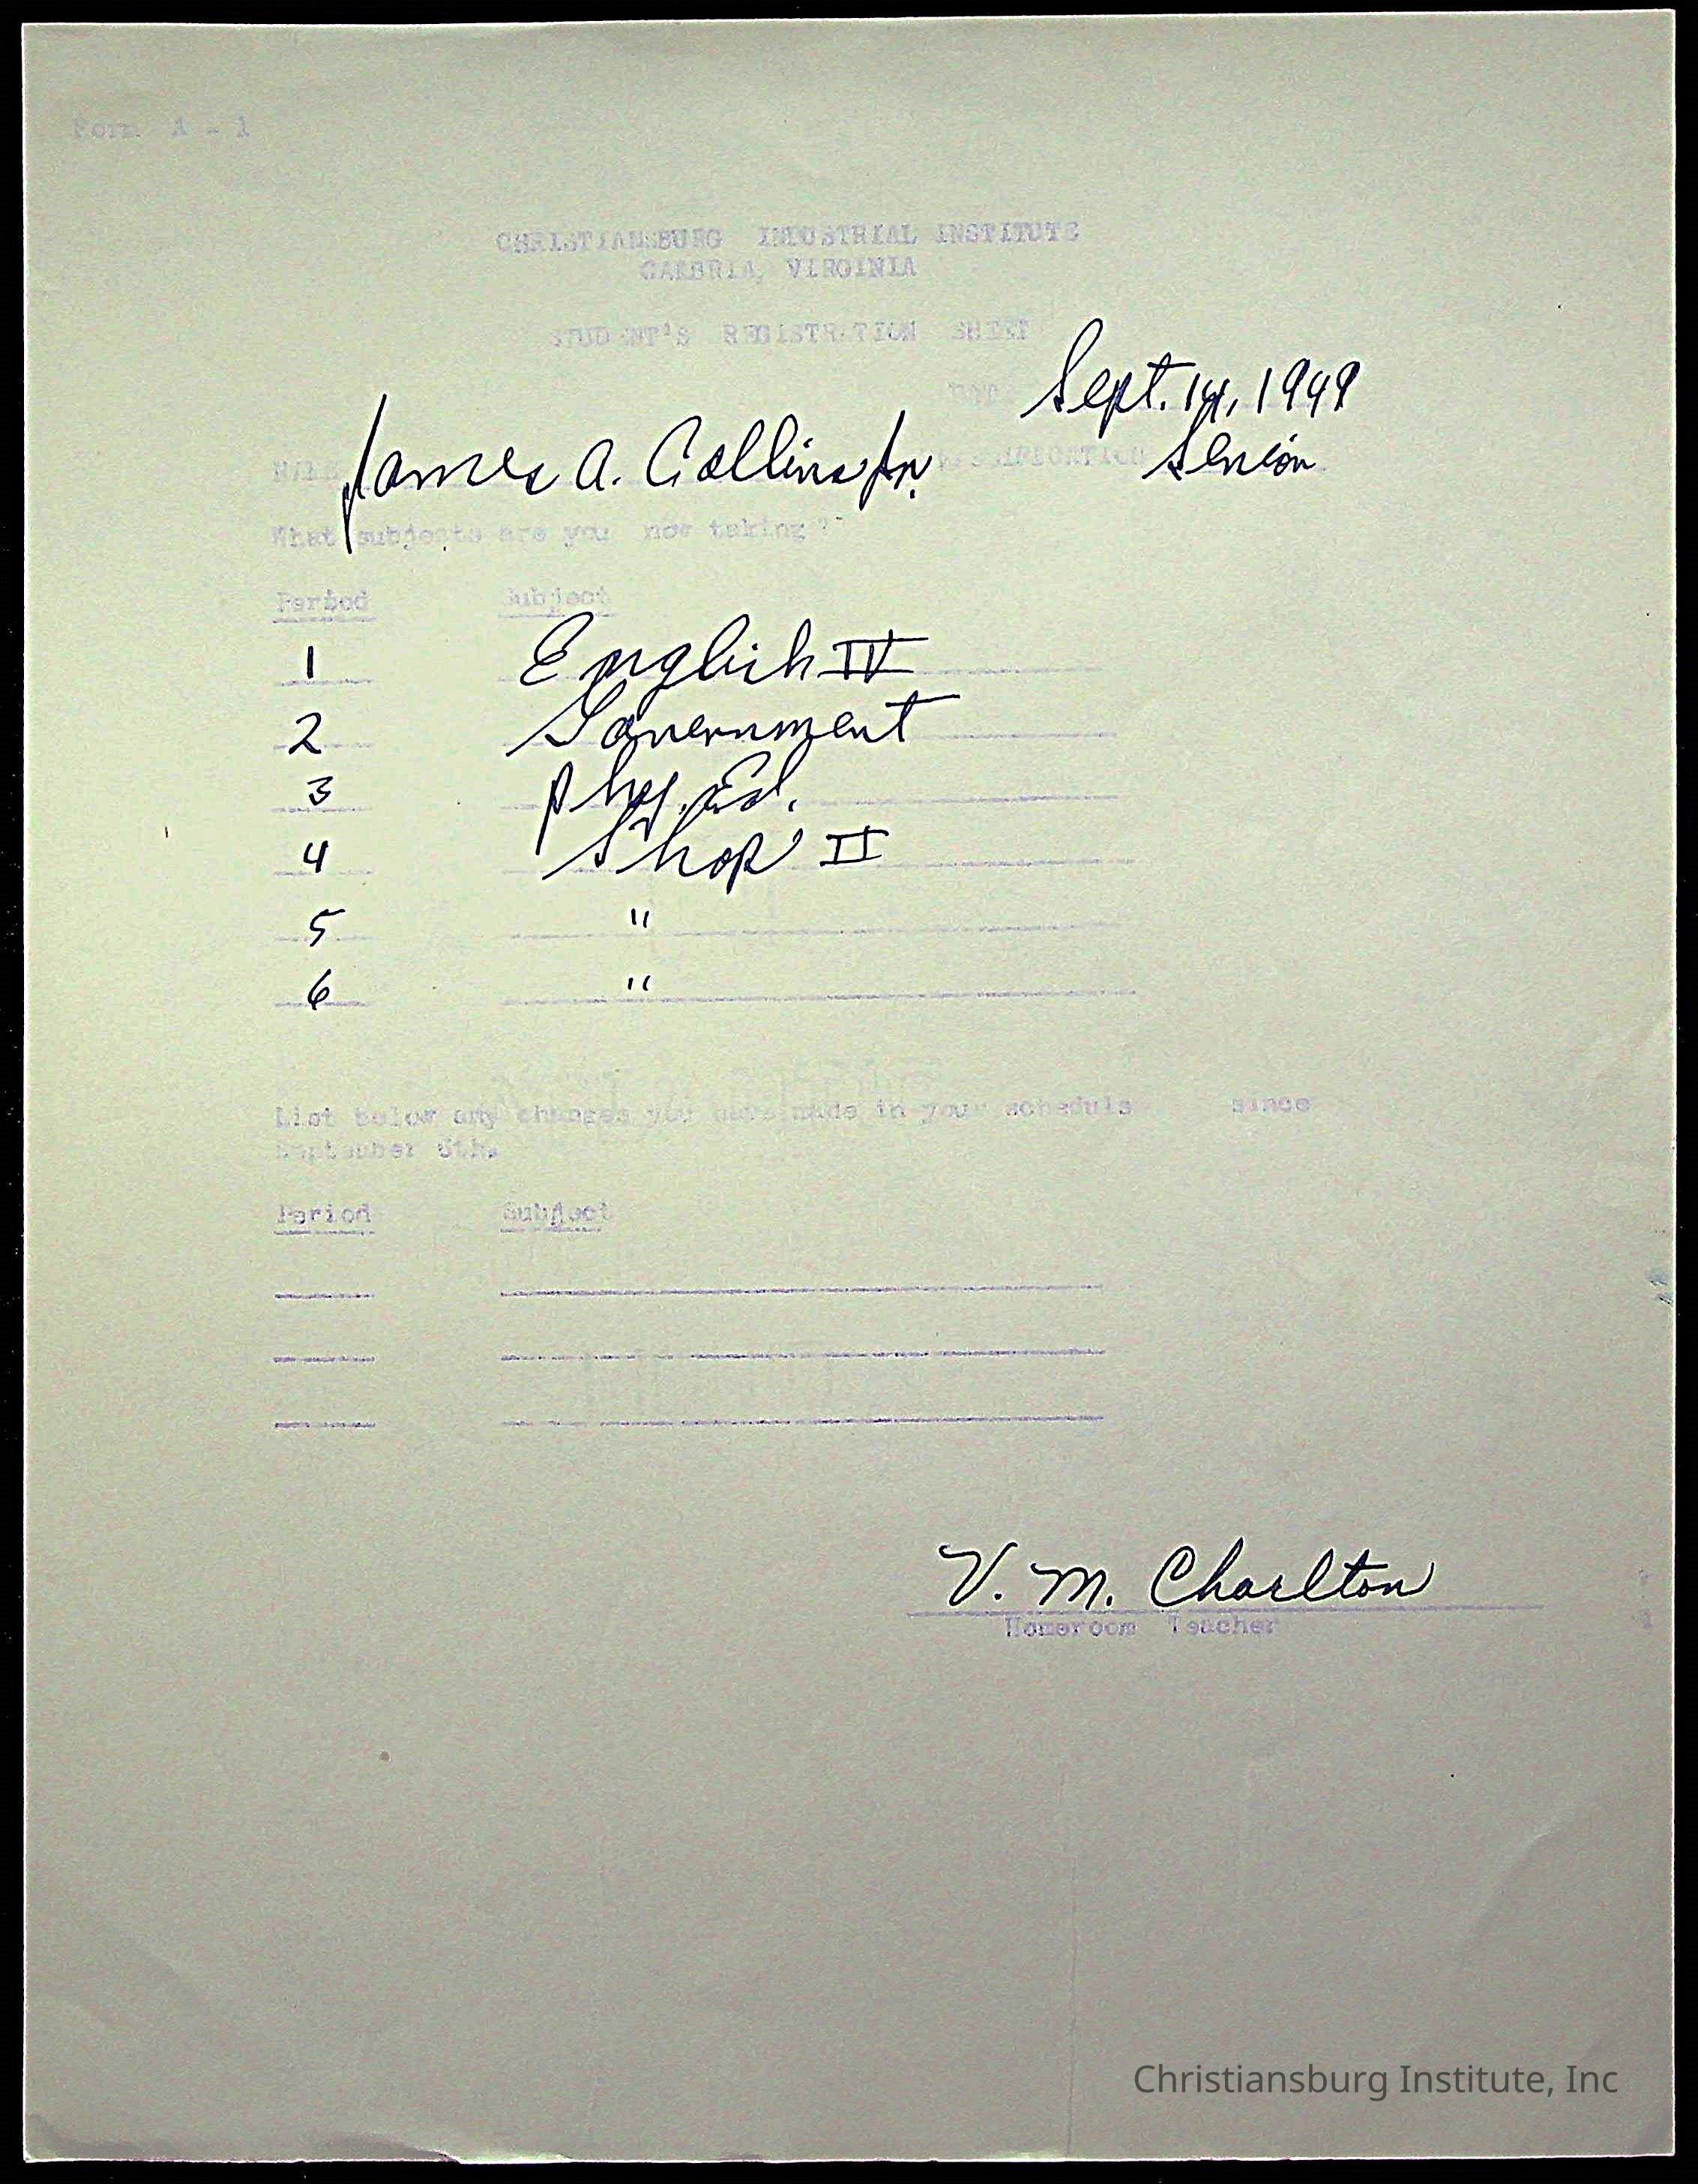 Form A - 1
CHRISTIANSBURG INDUSTRIAL INSTITUTE
CAMBRIA, VIRGINIA
STUDENT'S REGISTRATION SHEET
Sept. 14, 1949
James A. Collins Jr. Senior
What subjects are you now taking?
Period Subject
1 English IV
2 Government
3 Phy. Ed.
4 Shop II
5 "
6 "
List below any changes you have made in your schedule since
September 6th.
Period Subject
V. M. Charlton
Homeroom Teacher
Christiansburg Institute, Inc